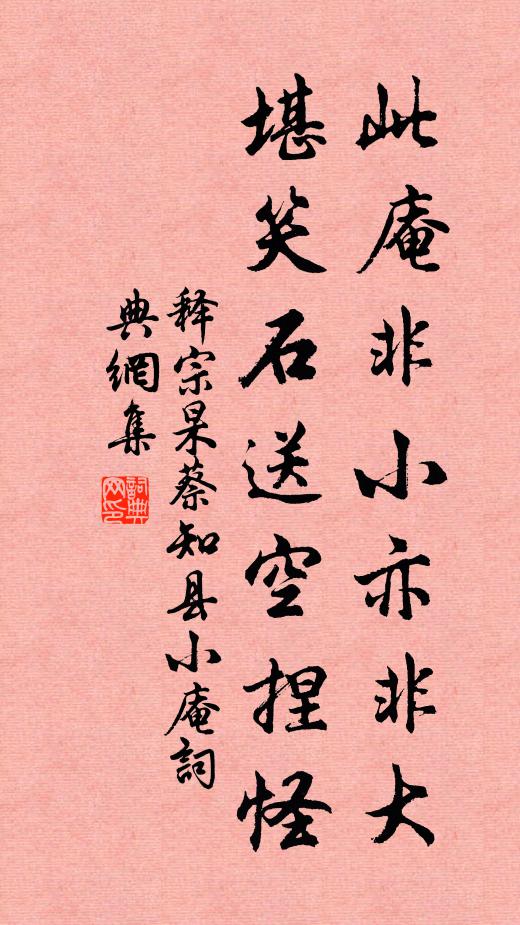 此庵非小亦非大
堪笑石送空捏怪
释宗杲蔡知县小庵詞
典網集
詞典网印